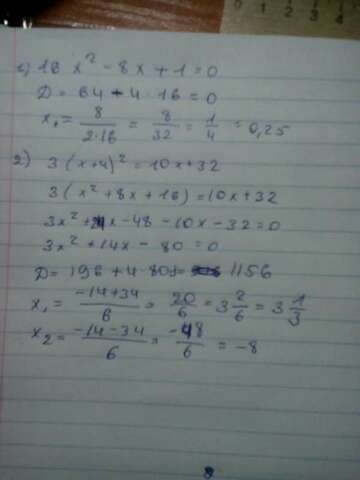 1) 16x² - 8x + 1 = 0
D = 64 + 4·16 = 0
x₁ = 8/(2·16) = 8/32 = 1/4 = 0,25
2) 3(x+4)² = 10x + 32
3(x² + 8x + 16) = 10x + 32
3x² + 24x - 48 - 10x - 32 = 0
3x² + 14x - 80 = 0
D = 196 + 4·80 = 1156
x₁ = (-14+34)/6 = 20/6 = 3 2/6 = 3 1/3
x₂ = (-14-34)/6 = -48/6 = -8